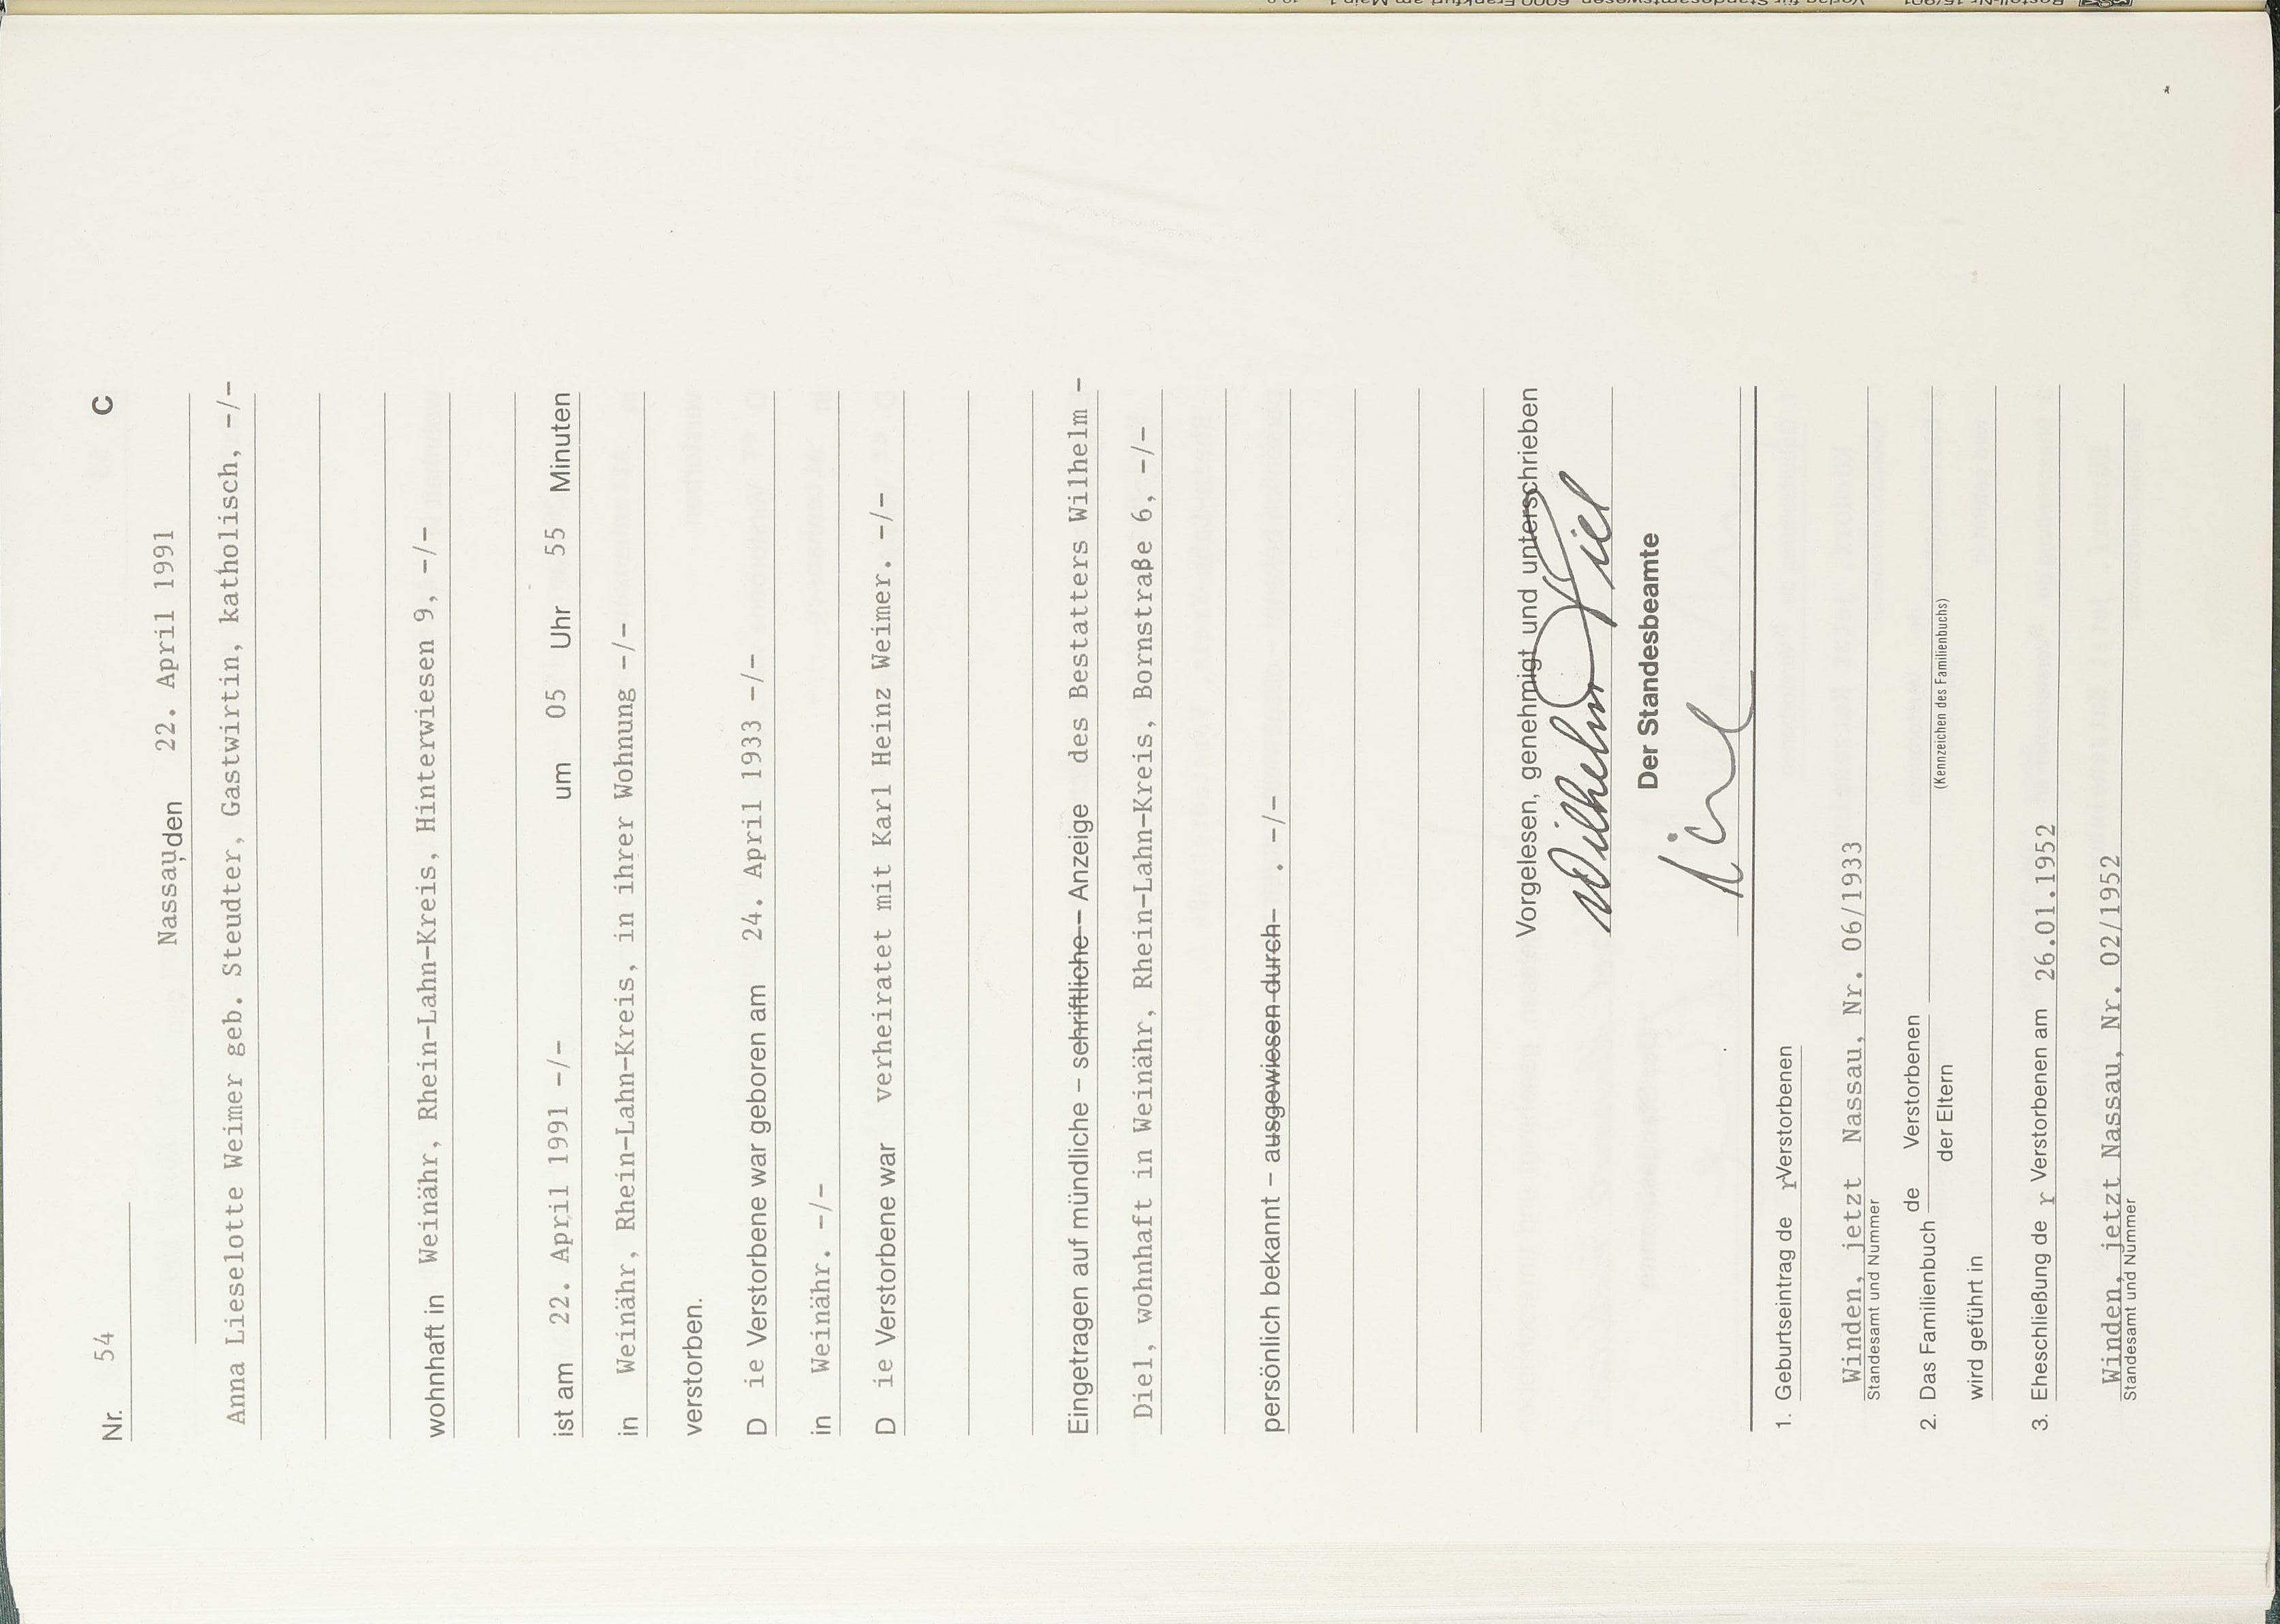 Nr. 54 C
Nassau, den 22. April 1991
Anna Lieselotte Weimer geb. Steudter, Gastwirtin, katholisch, -/-
wohnhaft in Weinähr, Rhein-Lahn-Kreis, Hinterwiesen 9, -/-
ist am 22. April 1991 -/- um 05 Uhr 55 Minuten
in Weinähr, Rhein-Lahn-Kreis, in ihrer Wohnung -/-
verstorben.
D ie Verstorbene war geboren am 24. April 1933 -/-
in Weinähr. -/-
D ie Verstorbene war verheiratet mit Karl Heinz Weimer. -/-
Eingetragen auf mündliche – schriftliche – Anzeige des Bestatters Wilhelm -
Diel, wohnhaft in Weinähr, Rhein-Lahn-Kreis, Bornstraße 6, -/-
persönlich bekannt – ausgewiesen durch . -/-
Vorgelesen, genehmigt und unterschrieben
Wilhelm Diel
Der Standesbeamte
1. Geburtseintrag de r Verstorbenen
Winden, jetzt Nassau, Nr. 06/1933
Standesamt und Nummer
2. Das Familienbuch de Verstorbenen
der Eltern
(Kennzeichen des Familienbuchs)
wird geführt in
3. Eheschließung de r Verstorbenen am 26.01.1952
Winden, jetzt Nassau, Nr. 02/1952
Standesamt und Nummer